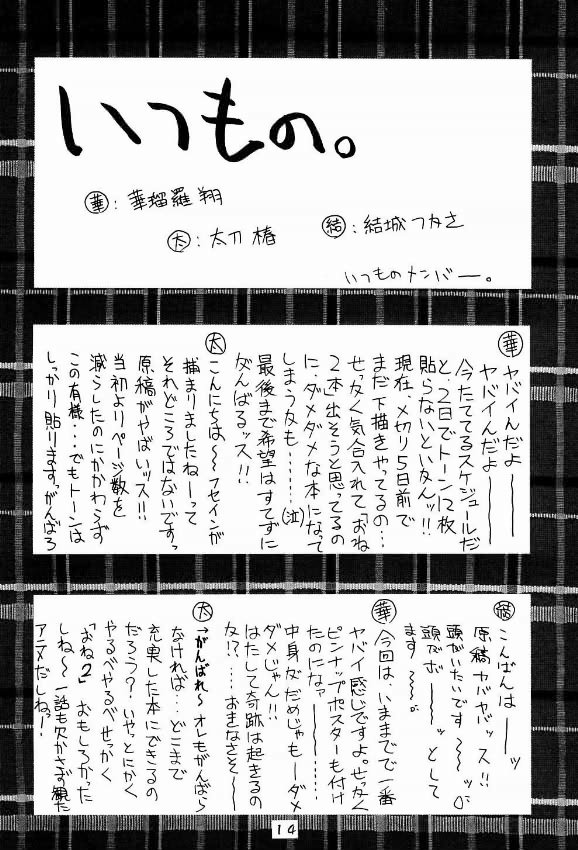 いつもの。
華：華瑠羅翔
太：太刀椿
結：結城つかさ
いつものメンバー。
華
ヤバイんだよ――
ヤバイんだよ――
今たててるスケジュールだ
と、2日でトーン12枚
貼らないといかんッ!!
現在、〆切り5日前で
まだ下描きやってるの…
せっかく気合入れて「おね
2本」出そうと思ってるの
に、ダメダメな本になって
しまうかも……(泣)
最後まで希望はすてずに
がんばるッス!!
太
こんにちは～～フセインが
捕まりましたねーって
それどころではないですっ
原稿がやばいッス!!
当初よりページ数を
減らしたのにかかわらず
この有様…でもトーンは
しっかり貼りますっがんばろ
結
こんばんは――ッ
原稿ヤバヤバッス!!
頭がいたいです～～ッ
頭がボ――ッとして
ます～～
華
今回は、いままでで一番
ヤバイ感じですよ。せっかく
ピンナップポスターも付け
たのになァ――
中身がだめじゃもーダメ
ダメじゃん!!
はたして奇跡は起きるの
か!?…おきなさそ～～
太
がんばれ～オレもがんばら
なければ…どこまで
充実した本にできるの
だろう?いやっとにかく
やるべやるべせっかく
「おね2」おもしろかった
しね～一話も欠かさず観た
アニメだしねっ!
14